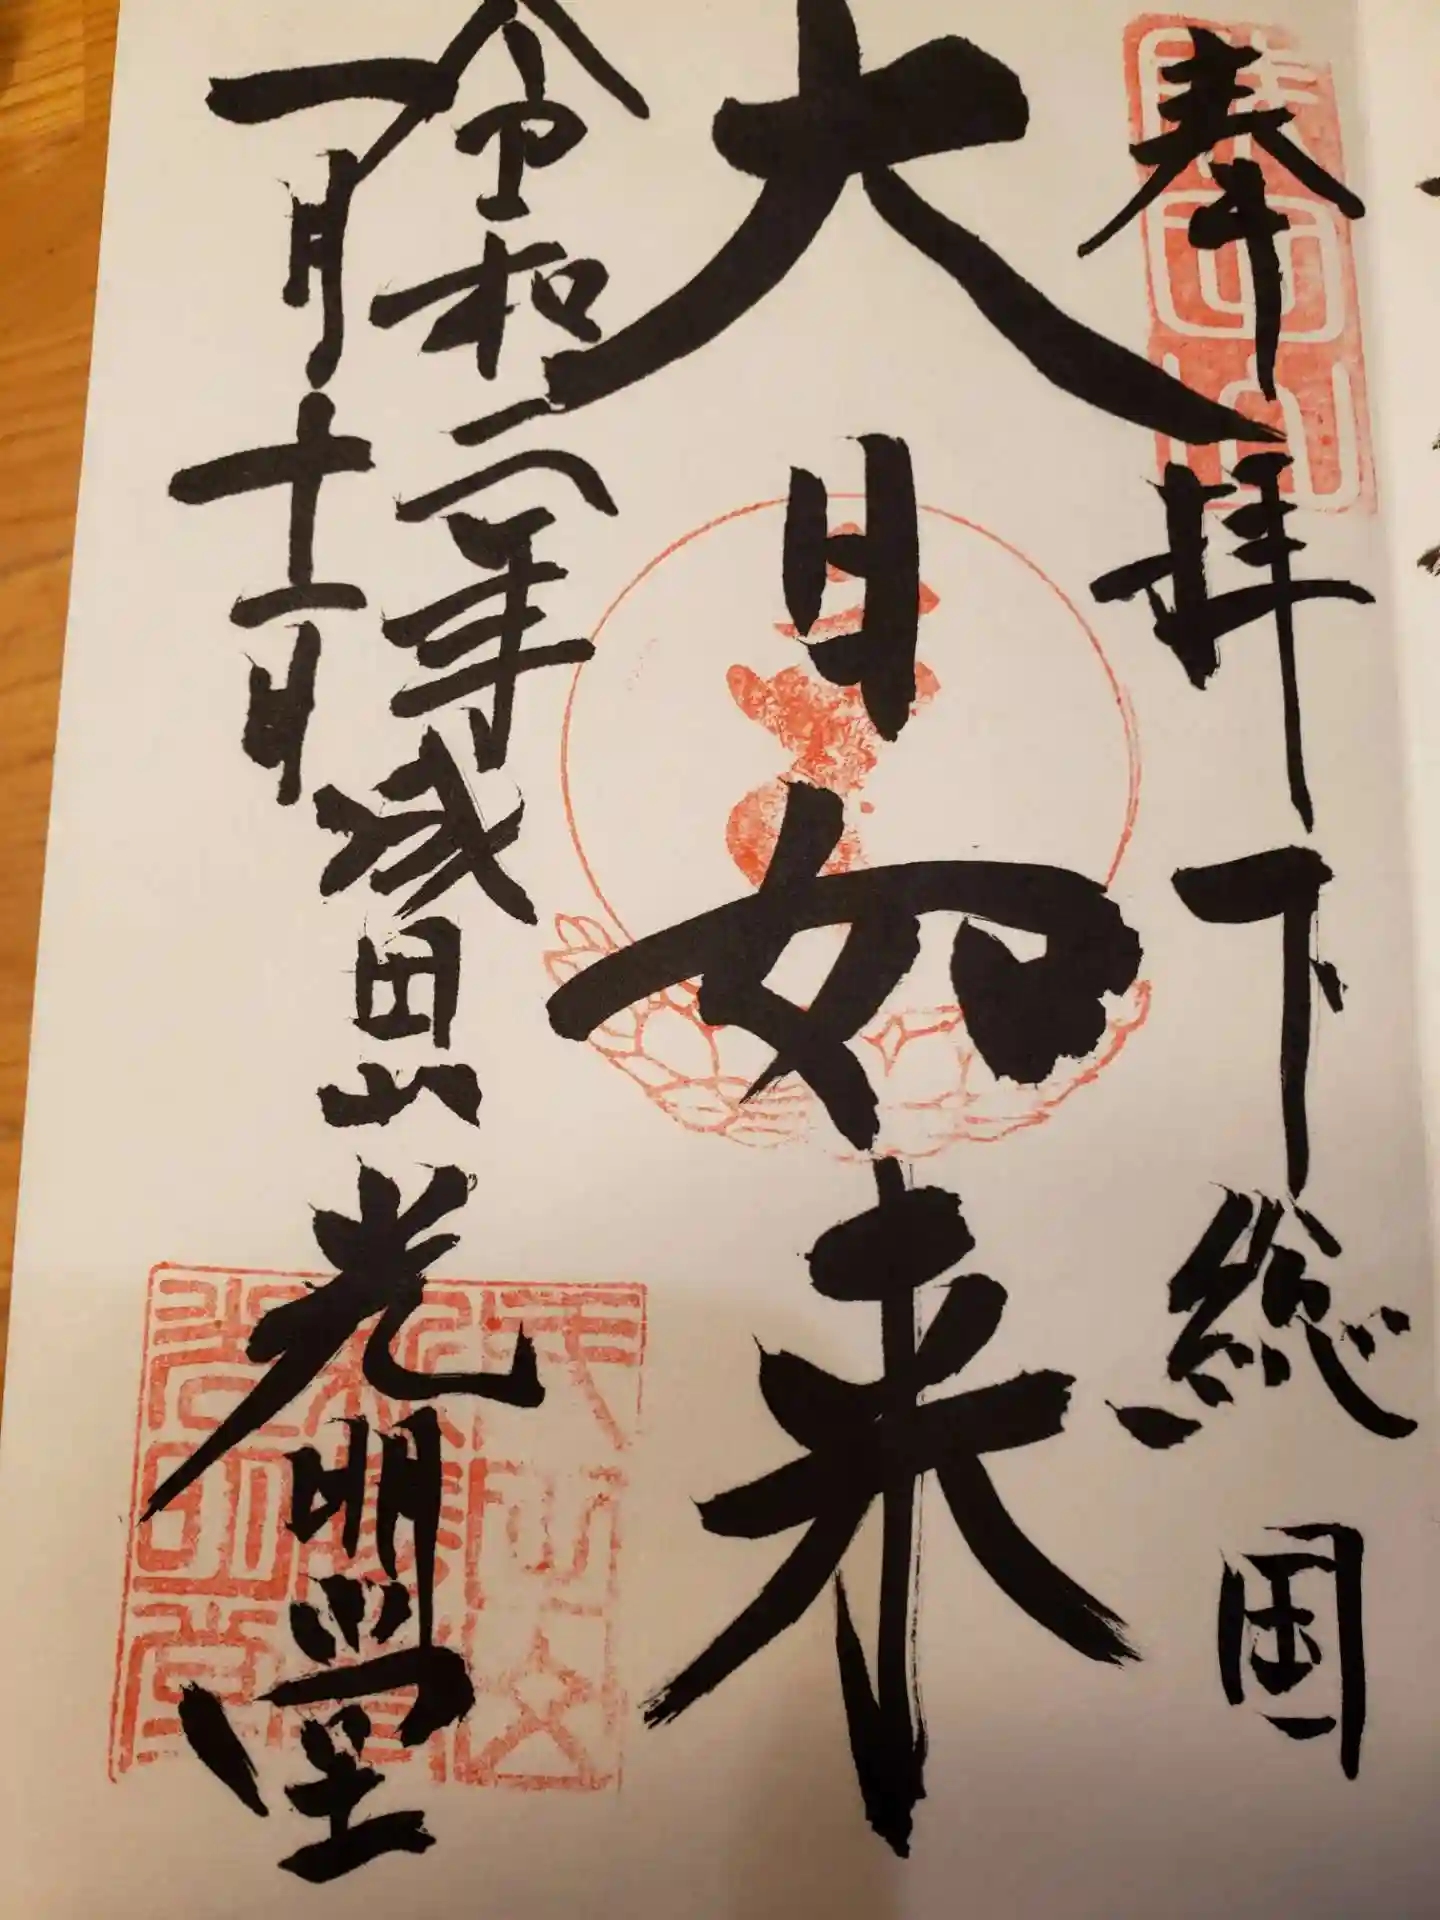 奉拝 下総国
大日如来
令和 年 成田山 光明堂
一月十一日